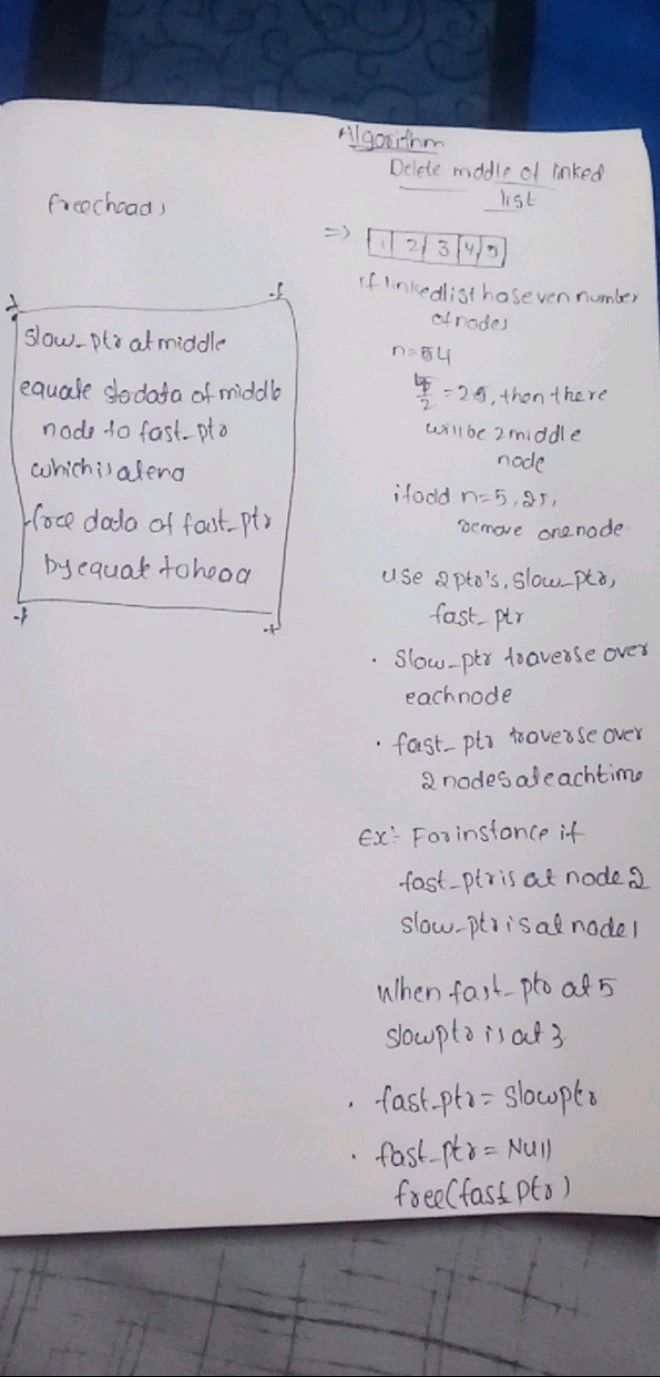 Algorithm
Delete middle of linked
list
=> 1 2 3 4 5
if linkedlist has even number
of nodes
n= 4
= 2, then there
will be 2 middle
node
if odd n=5,
remove one node
use 2 ptr's, slow_ptr,
fast_ptr
• slow_ptr traverse over
each node
• fast_ptr traverse over
2 nodes at each time
Ex:- For instance if
fast_ptr is at node 2
slow_ptr is at node 1
When fast_ptr at 5
slowptr is at 3
• fast_ptr = slowptr
• fast_ptr = Null
free(fast ptr)
free(head)
slow_ptr at middle
equate data of middle
node to fast_ptr
which is at end
free data of fast_ptr
by equate to head